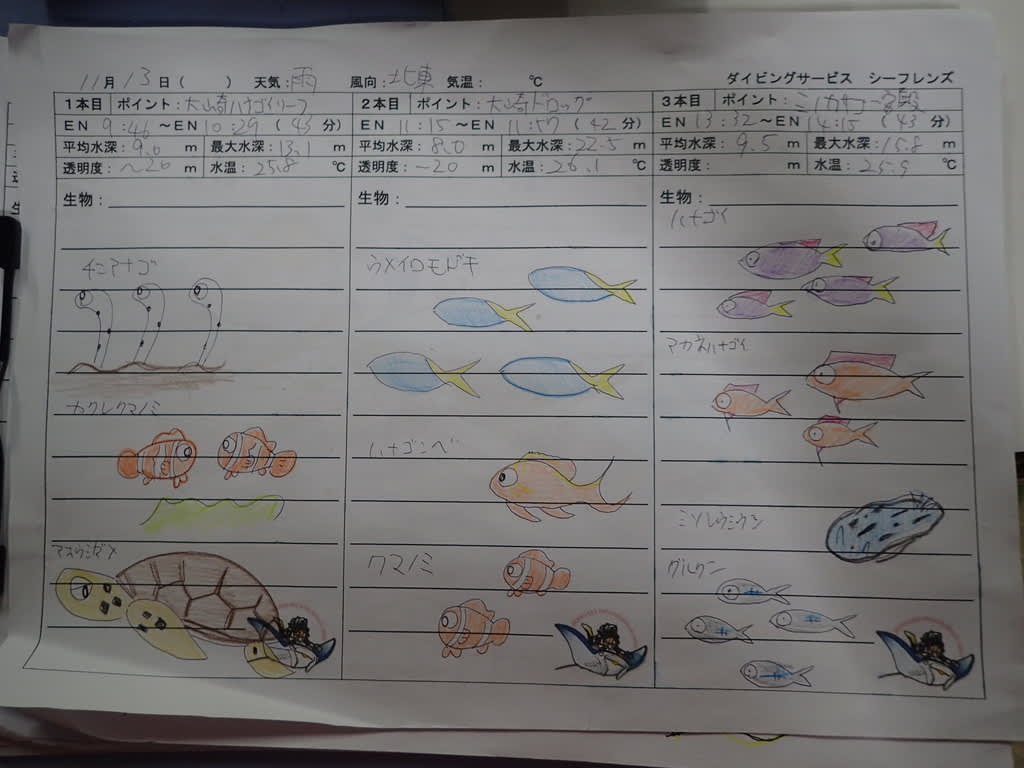 11月13日( ) 天気:雨 風向:北東 気温: ℃ ダイビングサービス シーフレンズ
1本目 ポイント:大崎ハナゴイリーフ
EN 9:46～EN 10:29(43分)
平均水深:9.0 m 最大水深:13.1 m
透明度:～20 m 水温:25.8 ℃
生物:
チンアナゴ
カクレクマノミ
アオウミガメ
2本目 ポイント:大崎ドロップ
EN 11:15～EN 11:57(42分)
平均水深:8.0 m 最大水深:22.5 m
透明度:～20 m 水温:26.1 ℃
生物:
ウメイロモドキ
ハナゴンベ
クマノミ
3本目 ポイント:
EN 13:32～EN 14:15(43分)
平均水深:9.5 m 最大水深:15.8 m
透明度: m 水温:25.9 ℃
生物:
ハナゴイ
アカネハナゴイ
ミゾレウミウシ
グルクン